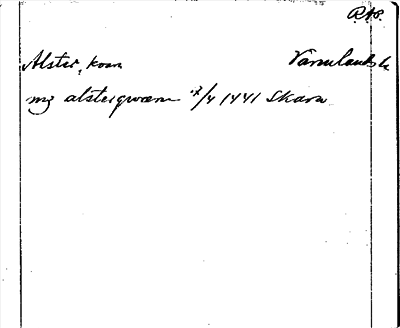 RAp.
Alster, kvarn Värmlands l.
my alsterqwærn 17/4 1441 Skara